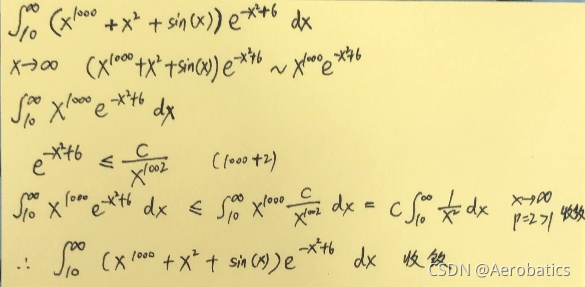 ∫₁₀^∞ (x¹⁰⁰⁰ + x² + sin(x)) e^(-x²+6) dx
x→∞ (x¹⁰⁰⁰+x²+sin(x)) e^(-x²+6) ~ x¹⁰⁰⁰e^(-x²+6)
∫₁₀^∞ x¹⁰⁰⁰ e^(-x²+6) dx
e^(-x²+6) ≤ C/x¹⁰⁰² (1000+2)
∫₁₀^∞ x¹⁰⁰⁰e^(-x²+6) dx ≤ ∫₁₀^∞ x¹⁰⁰⁰ C/x¹⁰⁰² dx = C∫₁₀^∞ 1/x² dx x→∞ p=2>1 收敛
∴ ∫₁₀^∞ (x¹⁰⁰⁰ + x² + sin(x)) e^(-x²+6) dx 收敛
CSDN @Aerobatics